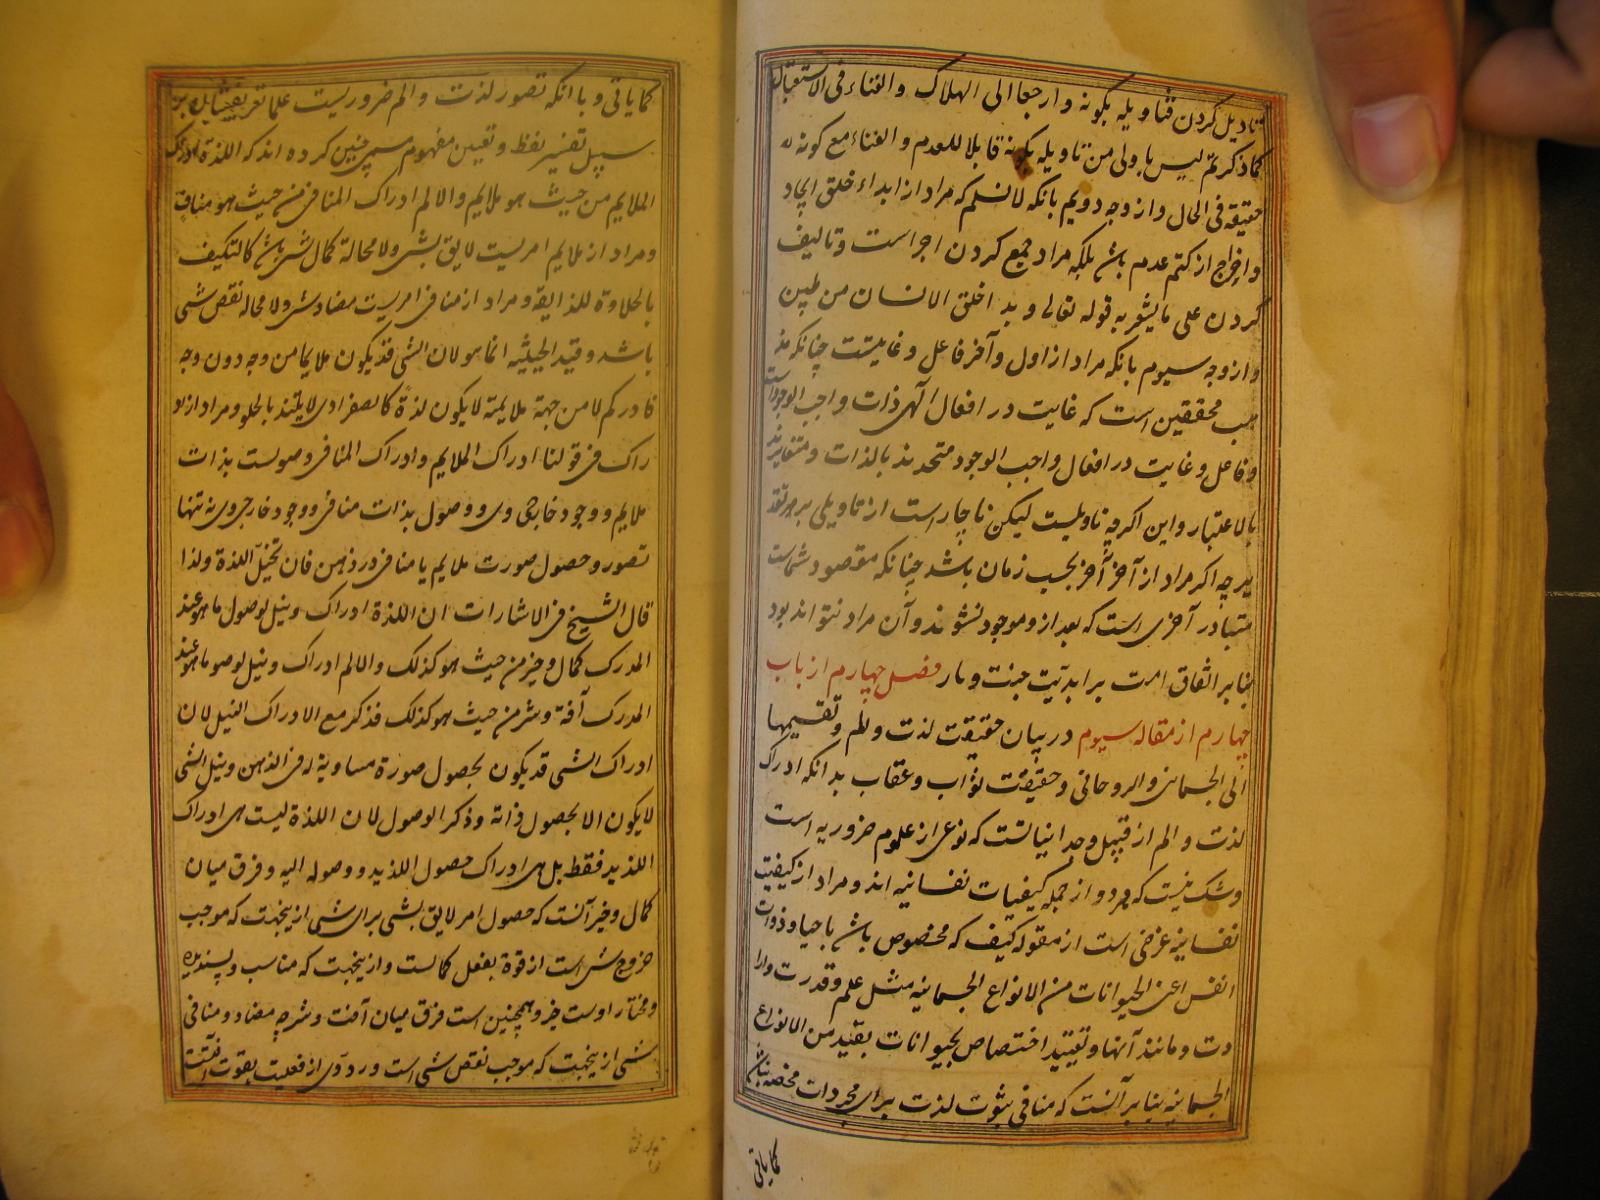 تاویل کردن فتاویله بکونه و ارجعا الی الهلاک والفناء فی الاستقبال
کما ذکرتم لیس باولی من تاویله بکونه قابلا للعدم و الفناء مع کونه له
حقیقة فی الحال و از وجه دویم بانکه لانسلم که مراد از ابداء خلق ایجاد
و اخراج از کتم عدم باشد بلکه مراد جمع کردن اجزا است و تالیف
کردن علی مایشعر به قوله تعالی و بدا خلق الانسان من طین
و از وجه سیوم بانکه مراد از اول و آخر فاعل و غایتست چنانکه مذ
هب محققین است که غایت در افعال الهی ذات واجب الوجود است
و فاعل و غایت در افعال واجب الوجود متحدند بالذات و متغایرند
بالاعتبار و این اکرچه تاویلست لیکن ناچار است از تاویلی بر هر تقد
یر چه اکر مراد از آخر آخر بحسب زمان باشد چنانکه مقصود شماست
متبادر آخری است که بعد از و موجود نشوند و آن مراد نتواند بود
بنابر اتفاق امت بر ابدیت جنت و نار فصل چهارم از باب
چهارم از مقاله سیوم در بیان حقیقت لذت و الم و تقسیمها
الی الجسمانی والروحانی و حقیقت ثواب و عقاب بدانکه ادراک
لذت و الم از قبیل وجدانیاتست که نوعی از علوم ضروریه است
و شک نیست که هر دو از جمله کیفیات نفسانیه اند و مراد از کیفیت
نفسانیه عرضی است از مقوله کیف که مخصوص باشد باحیا و ذوات
انفس اعنی الحیوانات من الانواع الجسمانیه مثل علم و قدرت و ارا
دت و مانند آنها و تقیید اختصاص بحیوانات بقید من الانواع
الجسمانیه بنابر آنست که منافی ثبوت لذت برای مجردات محضه نباشد
کما یاتی
کما یاتی و با انکه تصور لذت و الم ضروریست علما تعریفشان بر
سبیل تفسیر لفظ و تعیین مفهوم سمی چنین کرده اند که اللذة ادراک
الملایم من حیث هو ملایم والالم ادراک المنافی من حیث هو مناف
و مراد از ملایم امریست لایق بشی و لا محالة کمال شی باشد کالتکیف
بالحلاوة للذایقة و مراد از منافی امریست مضاد شی و لا محاله نقص شی
باشد و قید الحیثیه انما هو لان الشی قد یکون ملایما من وجه دون وجه
فادرکه لا من جهة ملایمة لا یکون لذة کالصفراوی لا یلتذ بالحلو و مراد از اد
راک فی قولنا ادراک الملایم و ادراک المنافی وصولست بذات
ملایم و وجود خارجی وی و وصول بذات منافی و وجود خارجی وی نه تنها
تصور و حصول صورت ملایم یا منافی در ذهن فان تخیل اللذة و لذا
قال الشیخ فی الاشارات ان اللذة ادراک و نیل لوصول ما هو عند
المدرک کمال و خیر من حیث هو کذلک والالم ادراک و نیل لوصول ما هو عند
المدرک آفة و شر من حیث هو کذلک فذکر مع الادراک النیل لان
ادراک الشی قد یکون بحصول صورة مساویة له فی الذهن و نیل الشی
لا یکون الا بحصول ذاته و ذکر الوصول لان اللذة لیست هی ادراک
اللذیذ فقط بل هی ادراک حصول اللذیذ و وصوله الیه و فرق میان
کمال و خیر آنست که حصول امر لایق بشی برای شی از ینجهت که موجب
خروج شی است از قوة بفعل کمالست و از ینجهت که مناسب و پسندیده
و مختار اوست خیر و همچنین است فرق میان آفت و شر چه مضاد و منافی
شی از ینجهت که موجب نقص شی است و رد وی از فعلیت بقوت آفتست